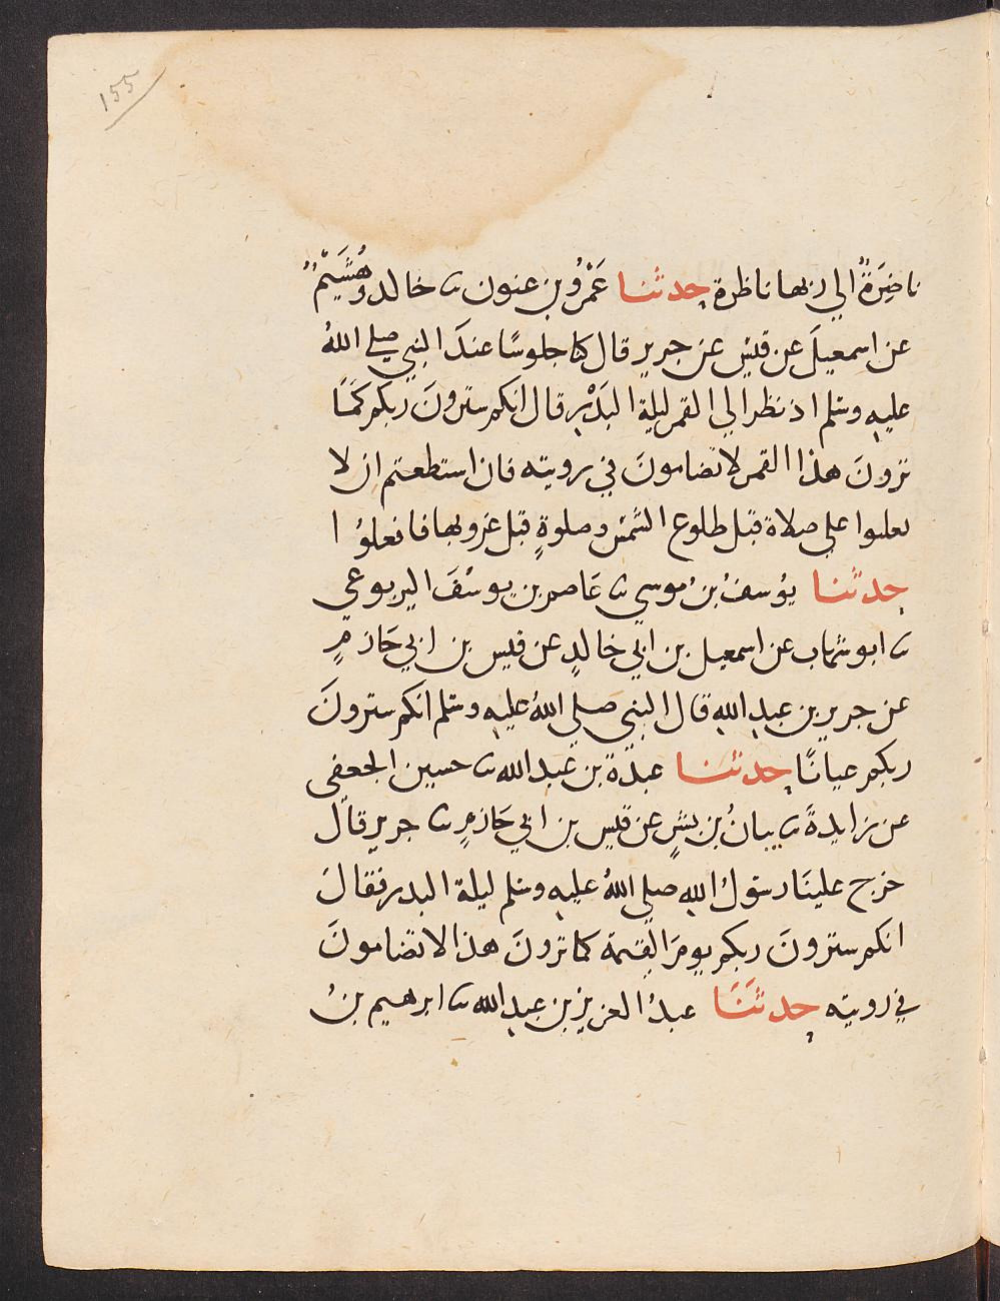 155
ناضِرَةٌ الي ربها ناظرة حدثنا عَمْرُو بن عنون ثنا خالد وهُشَيْمٌ
عن اسمعيلَ عن قيس عن جرير قال كنا جلوسًا عندَ النبي صلي اللهُ
عليه وسلم اذ نظر الي القمر ليلة البَدْرِ قال انكم سترونَ ربكم كَمَا
ترونَ هذا القمر لا تضامونَ في رويته فان استطعتم ان لا
تغلبوا علي صلاة قبل طلوع الشمس وصلوةٍ قبل غروبها فافعلوُا
حدثنا يوُسفُ بنُ موسي ثنا عَاصم بن يوسُفَ اليربوعي
ثنا ابو شهاب عن اسمعيل بن ابي خالدٍ عن قيس بن ابي حَازمٍ
عن جرير بن عبدِ اللهِ قال النبي صَلي اللهُ عليه وسلم انكم سترونَ
ربكم عيانًا حدثنا عبدة بن عَبد الله ثنا حسين الجعفى
عن زايدةَ ثنا بيانُ بن بشرٍ عن قيس بن ابي حَازمٍ ثنا جرير قال
خرج علينَا رسَولُ اللهِ صلي اللهُ عليهِ وسلم ليلة البدر فقالَ
انكم سترونَ ربكم يومَ القيمة كما ترونَ هذا لا تضامونَ
في رويته حدثنَا عبدُ العزيز بن عبدِ الله ثنا ابرهيم بنُ